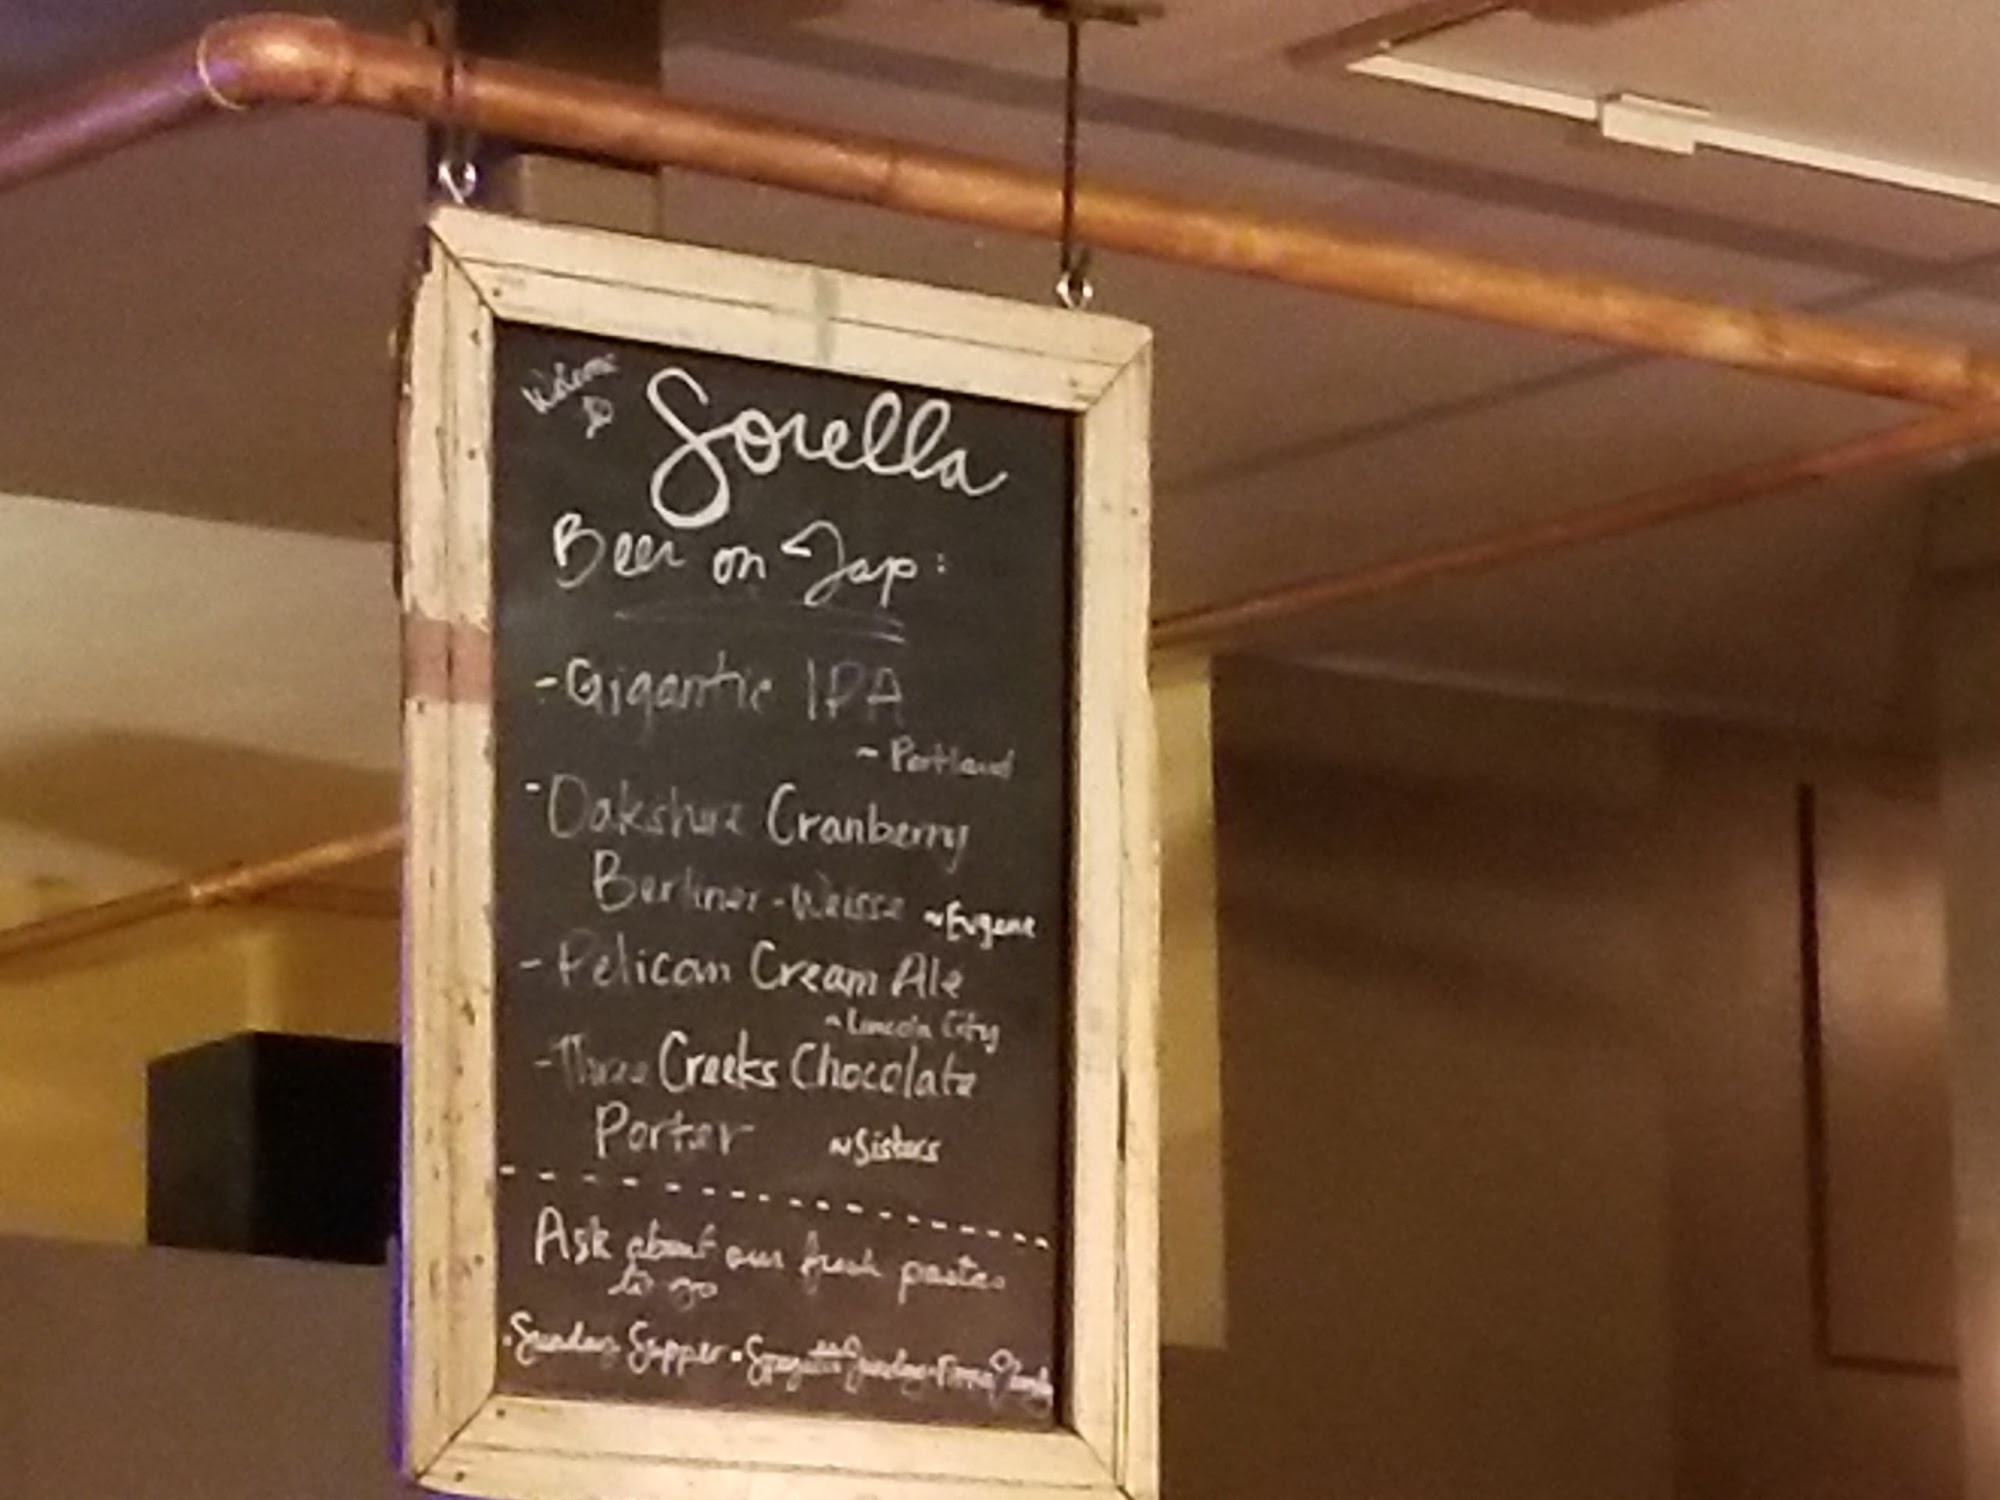 Welcome to
Sorella
Beer on Tap:
- Gigantic IPA
~ Portland
- Oakshire Cranberry
Berliner-Weisse ~Eugene
- Pelican Cream Ale
~Lincoln City
- Three Creeks Chocolate
Porter ~Sisters
Ask about our fresh pastas
to go
• Sunday Supper • Spaghetti Tuesday •